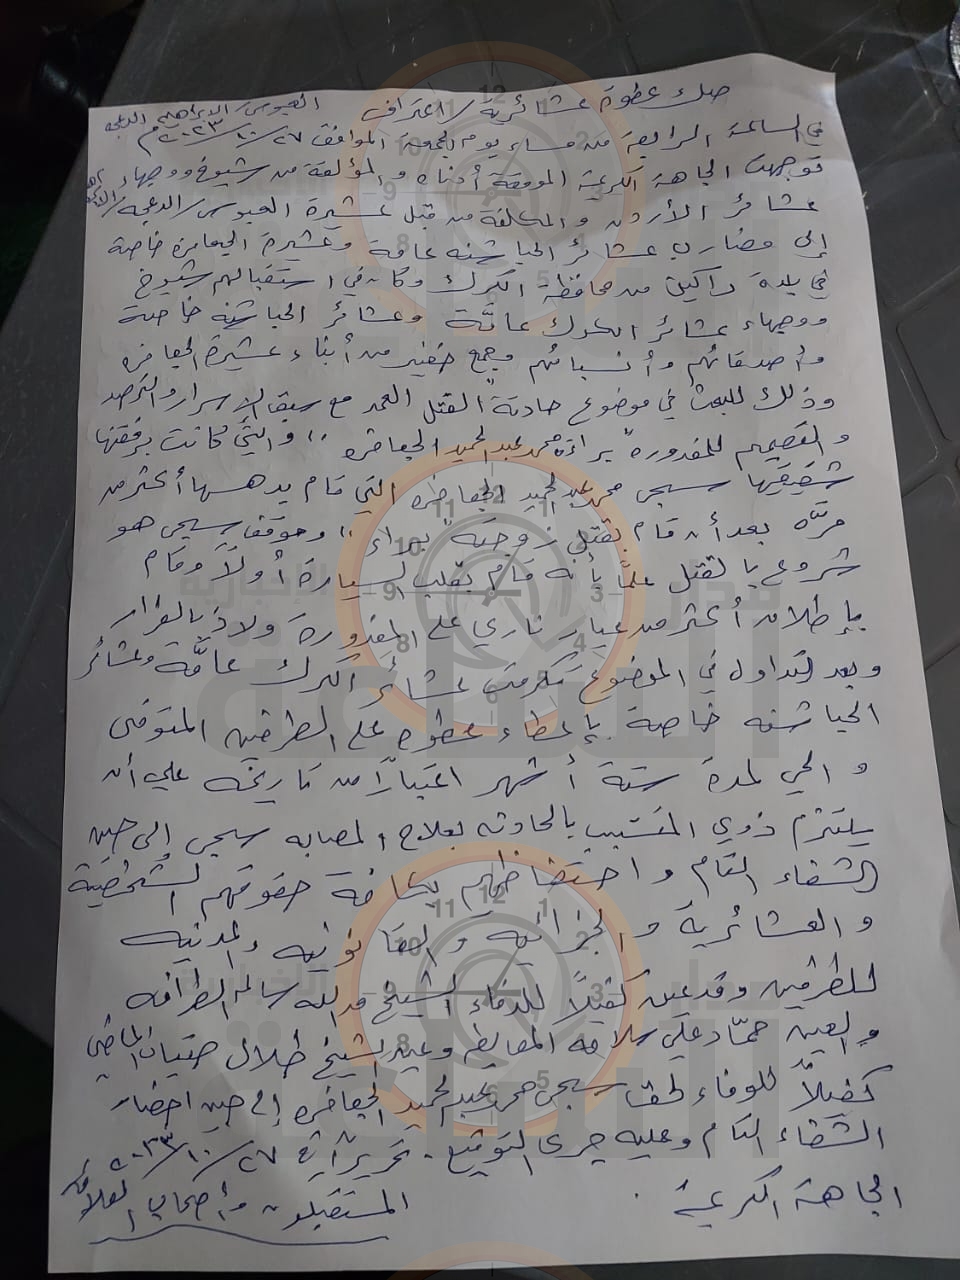 صك عطوة عشائرية / اعتراف العبوس / البراهيم الدعجه
في الساعة الرابعة من مساء يوم الجمعة الموافق ٢٧/١٠/٢٠٢٣م
توجهت الجاهة الكريمة الموقعة أدناه والمؤلفة من شيوخ ووجهاء
عشائر الأردن والمكلفة من قبل عشيرة العبوس / الدعجه
إلى مضارب عشائر الحباشنه عامة وعشيرة الجعافرة خاصة
في بلدة راكين من محافظة الكرك وكان في استقبالهم شيوخ
ووجهاء عشائر الكرك عامّة وعشائر الحباشنه خاصة
وأصدقائهم وأنسبائهم وجمع غفير من أبناء عشيرة الجعافره
وذلك للبحث في موضوع حادثة "القتل العمد مع سبق الاسرار والترصد
والتصميم للمغدورة" براءة محمد عبد الحميد الجعافره ،، والتي كانت برفقتها
شقيقتها سجى محمد عبد الحميد الجعافره التي قام بدهسها أكثر من
مرّه بعد أن قام بقتل زوجته "براءة" وموقف سجى هو
شروع بالقتل علماً بأنه قام بقلب السيارة أولاً وقام
بإطلاق أكثر من عيار ناري على المغدورة ولاذ بالفرار
وبعد التداول في الموضوع تكرمت عشائر الكرك عامّة وعشائر
الحباشنه خاصة بإعطاء عطوه على الطرفين المتوفى
والحي لمدة ستة أشهر اعتباراً من تاريخه على أن
يلتزم ذوي المتسبب بالحادثه بعلاج المصابه سجى إلى حين
الشفاء التام واحتفاظهم بكافة حقوقهم الشخصية
والعشائرية والجزائية والقانونيه والمدنيه
للطرفين وقد عين كفيلاً للدفاء الشيخ عبدالله سالم الطرافه
والعين حمّاد علي سلامه المعايطه وعين الشيخ طلال صيتان الماضي
كفيلاً للوفاء لحق سجى محمد عبد الحميد الجعافره إلى حين احضار
الشفاء التام وعليه جرى التوقيع. تحريراً في ٢٧/١٠/٢٠٢٣م
الجاهة الكريمة. المستقبلون وأصحاب العلاقه
12 11 1 10 2 9 3 8 4 7 5 6
مدار الساعة الإخبارية